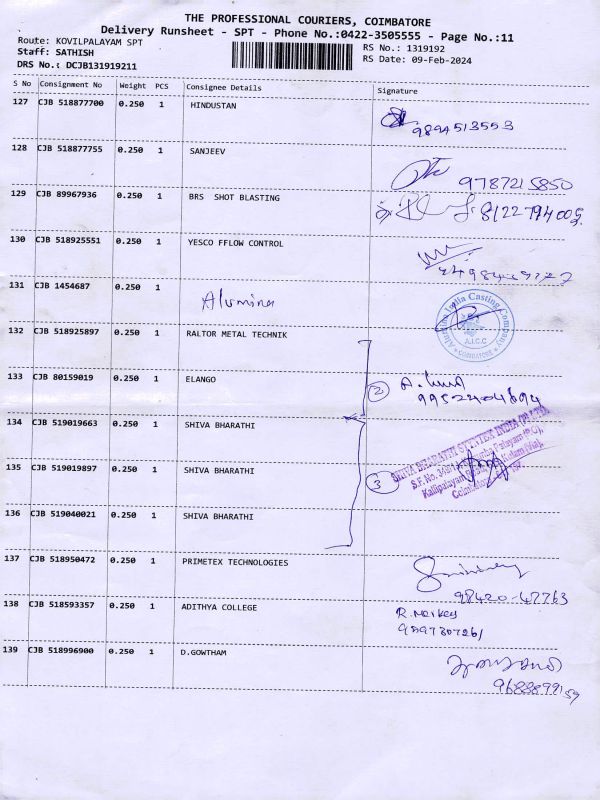 THE PROFESSIONAL COURIERS, COIMBATORE
Delivery Runsheet - SPT - Phone No.:0422-3505555 - Page No.:11
Route: KOVILPALAYAM SPT
RS No.: 1319192
Staff: SATHISH
RS Date: 09-Feb-2024
DRS No.: DCJB131919211
S No Consignment No Weight PCS Consignee Details Signature
127 CJB 518877700 0.250 1 HINDUSTAN
9894513553
128 CJB 518877755 0.250 1 SANJEEV
9787215850
129 CJB 89967936 0.250 1 BRS SHOT BLASTING
8122794005
130 CJB 518925551 0.250 1 YESCO FFLOW CONTROL
131 CJB 1454687 0.250 1
Alumina
India Casting Company
A.I.C.C
COIMBATORE
132 CJB 518925897 0.250 1 RALTOR METAL TECHNIK
133 CJB 80159019 0.250 1 ELANGO
2
9952404694
134 CJB 519019663 0.250 1 SHIVA BHARATHI
135 CJB 519019897 0.250 1 SHIVA BHARATHI
3
BHARATHI INDIA (P) LTD
S.F.No.
Kalipalayam
136 CJB 519040021 0.250 1 SHIVA BHARATHI
137 CJB 518950472 0.250 1 PRIMETEX TECHNOLOGIES
98420-47763
138 CJB 518593357 0.250 1 ADITHYA COLLEGE
139 CJB 518996900 0.250 1 D.GOWTHAM